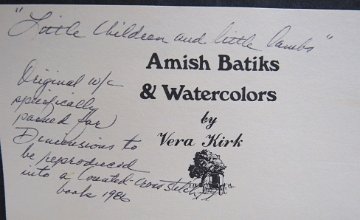 "Little Children and little lambs"
Amish Batiks
& Watercolors
by
Vera Kirk
Original w/c
specifically
painted for
Dimensions to
be reproduced
into a counted-cross stitch
book 1986